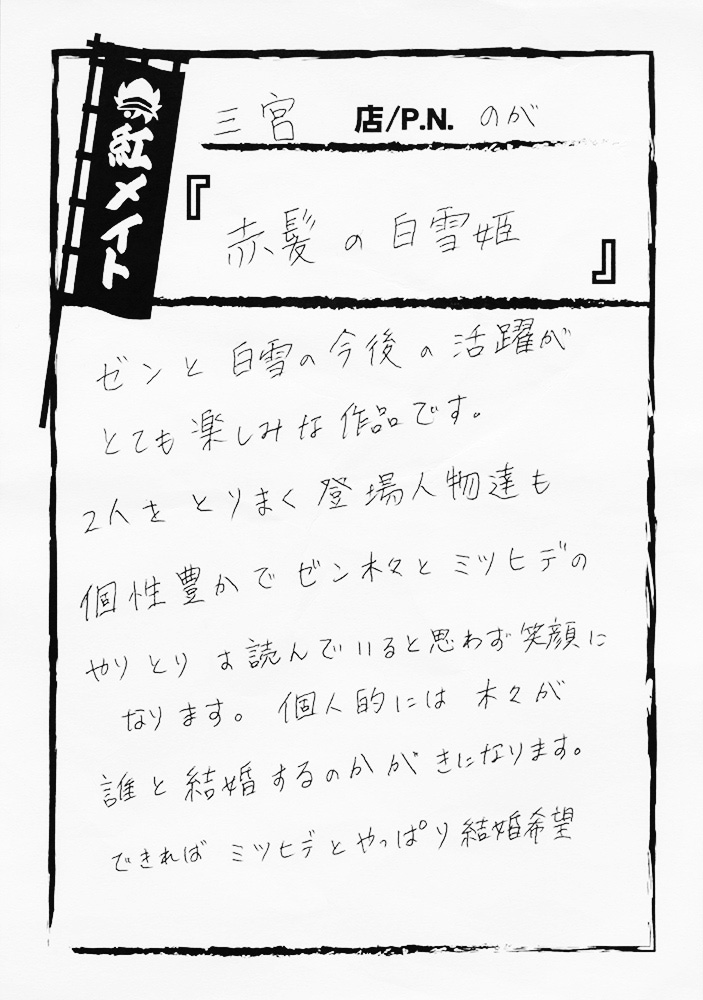 紅メイト
三宮 店/P.N. のが
『赤髪の白雪姫』
ゼンと白雪の今後の活躍が
とても楽しみな作品です。
2人をとりまく登場人物達も
個性豊かでゼン木々とミツヒデの
やりとりは読んでいると思わず笑顔に
なります。個人的には木々が
誰と結婚するのかがきになります。
できればミツヒデとやっぱり結婚希望